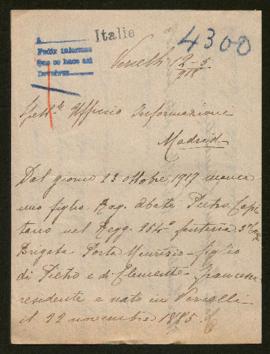 Italie
4300
A
Pedir informes
Que se hace así
Devolver
Vercelli 12-5
918
Spett. Ufficio Informazione
Madrid
Dal giorno 23 ottobre 1917 manca
mio figlio Rag. Abate Pietro Capi
tano nel Regg. 154° fanteria
Brigata figlio
di Pietro e di Clemente Francesca
residente e nato in Vercelli
il 22 novembre 1885